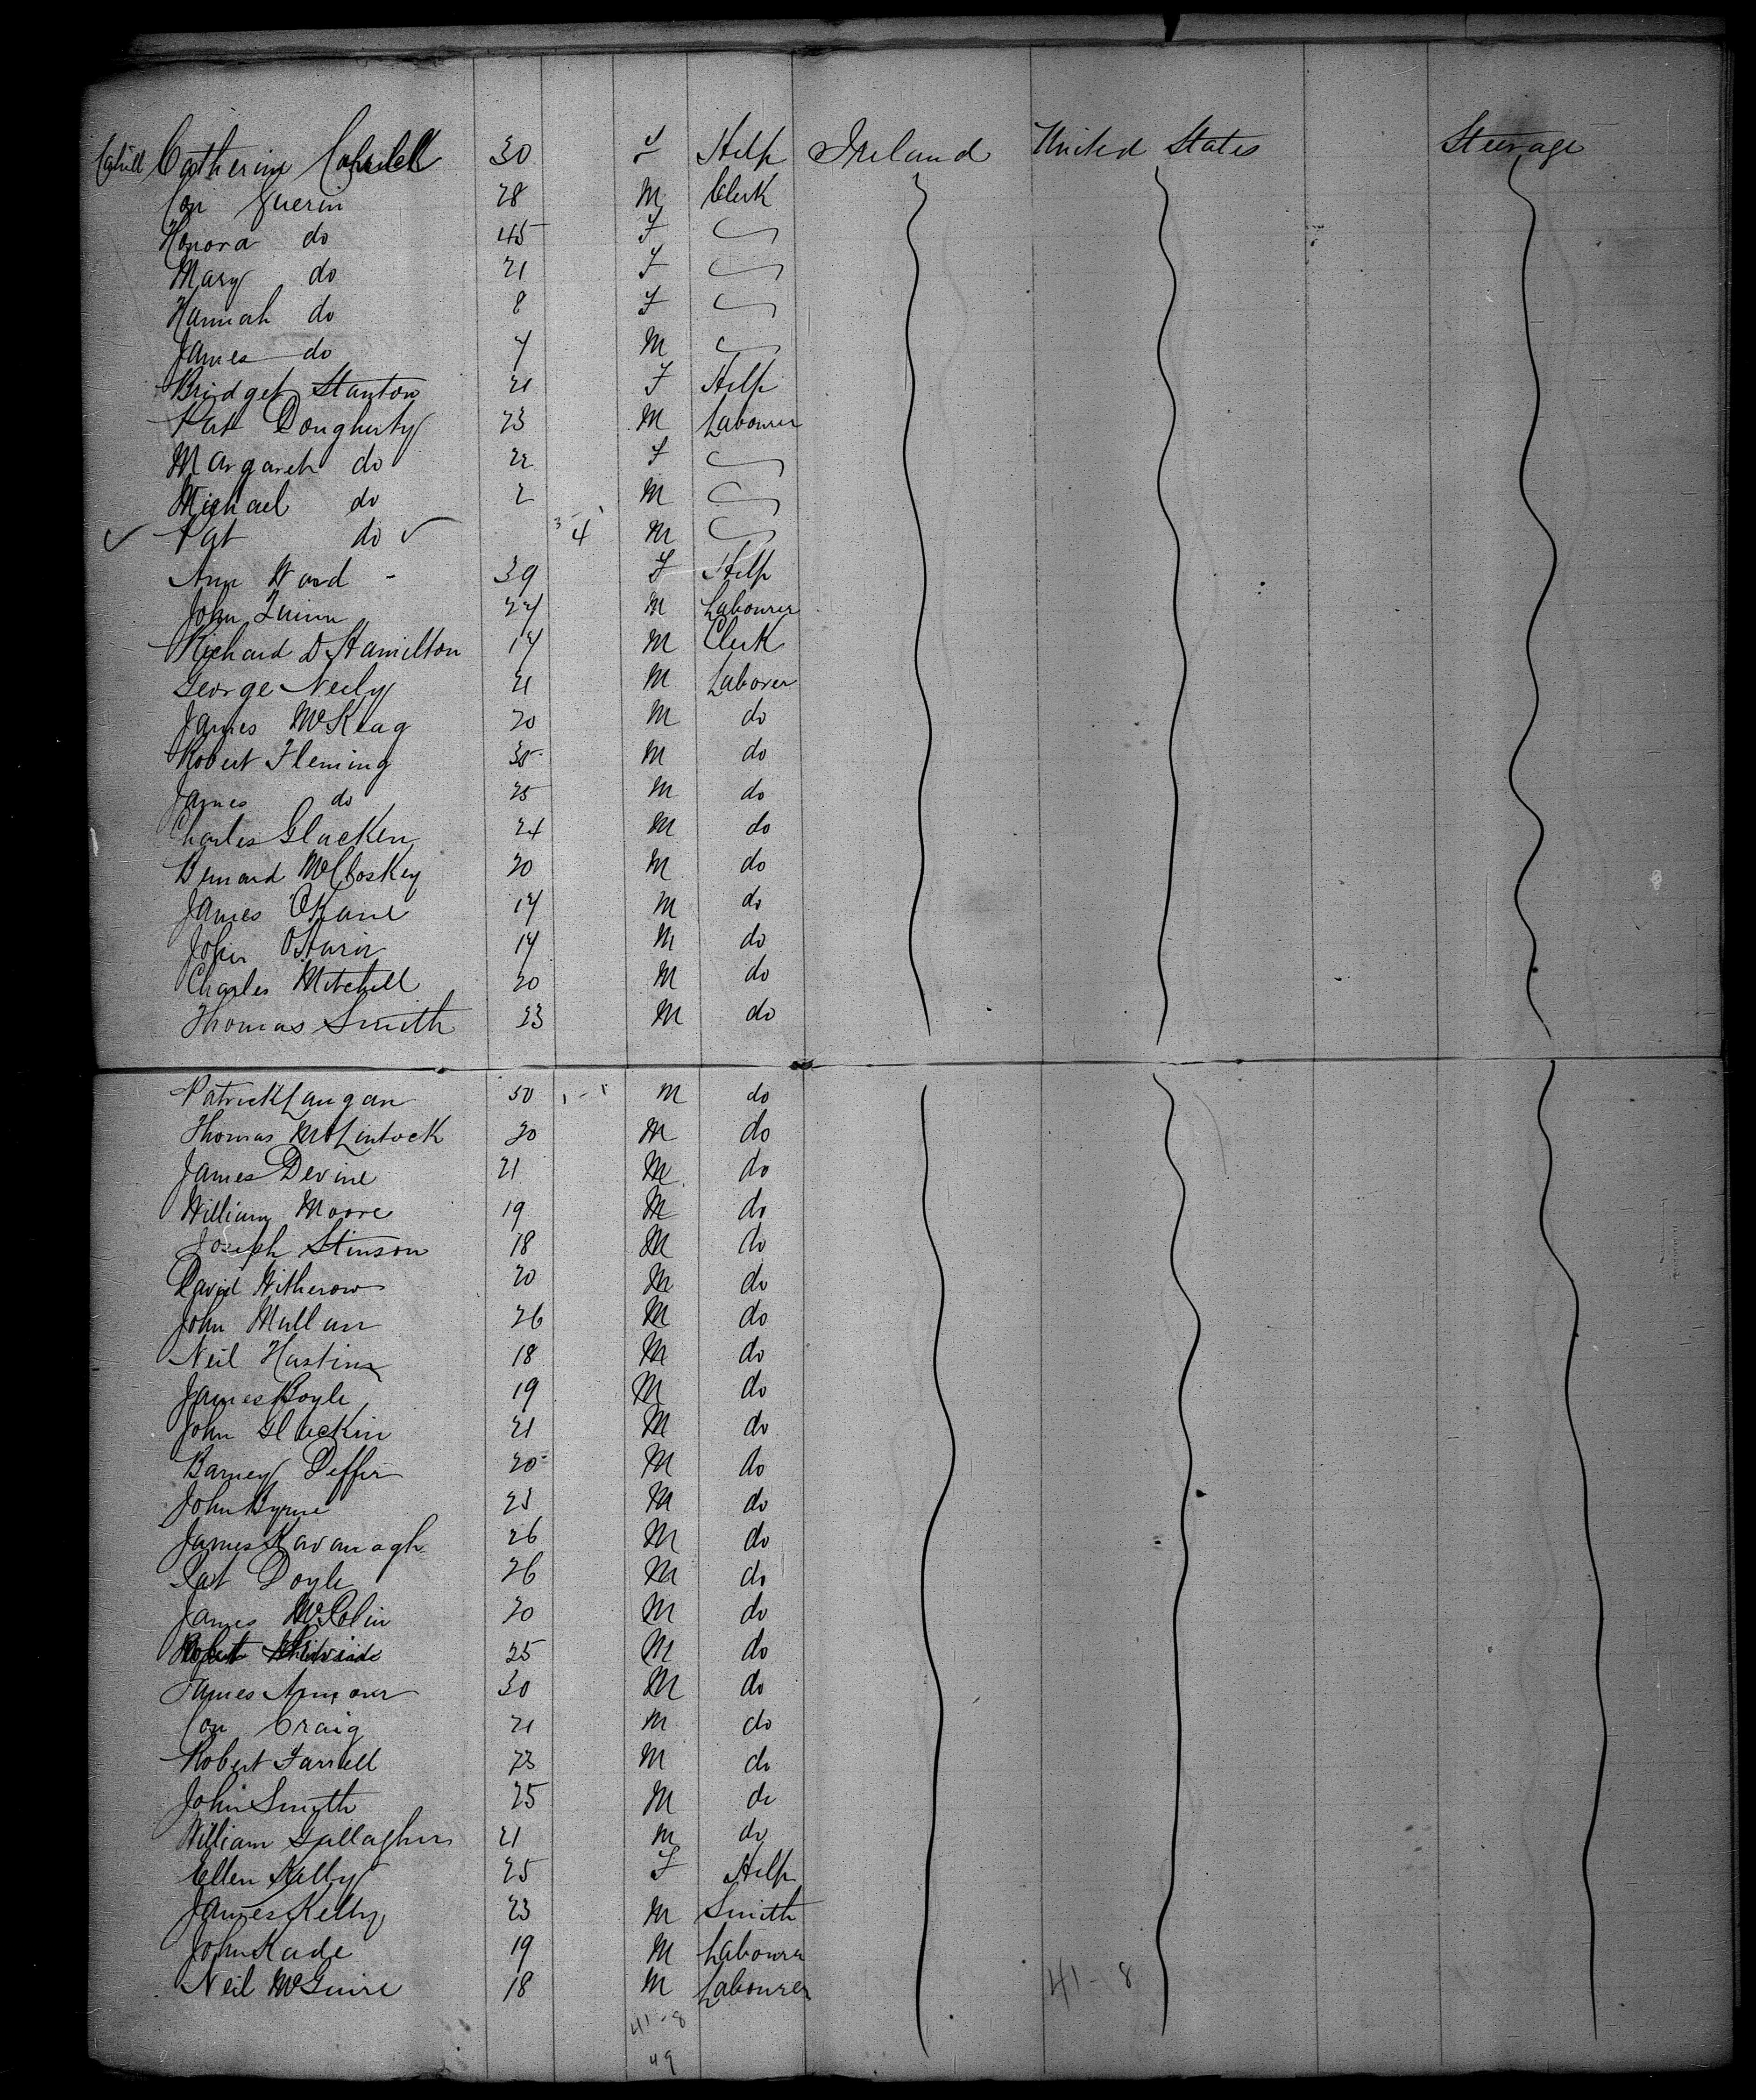 Cahill Catherine Cahill 30 F Help Ireland United States Steerage
Con Guerin 28 M Clerk
Honora do 45 F
Mary do 21 F
Hannah do 8 F
James do 7 M
Bridget Stanton 21 F Help
Pat Dougherty 23 M Labourer
Margaret do 22 F
Michael do 2 M
Pat do 4 M
Ann Ward - 39 F Help
John Quinn 27 M Labourer
Richard D Hamilton 17 M Clerk
George Neely 21 M Laborer
James McKeag 20 M do
Robert Fleming 35 M do
James do 25 M do
Charles Glacken 24 M do
Bernard McCloskey 20 M do
James OKane 17 M do
John 17 M do
Charles Mitchell 20 M do
Thomas Smith 23 M do
Patrick Langan 50 M do
Thomas McLintock 20 M do
James Devine 21 M do
William Moore 19 M do
Joseph Stinson 18 M do
David Witherow 20 M do
John Mullan 26 M do
Neil 18 M do
James Boyle 19 M do
John Glackin 21 M do
Barney 20 M do
John Byrne 23 M do
James Kavanagh 26 M do
Pat Doyle 26 M do
James 20 M do
Robert 25 M do
James Armour 30 M do
Con Craig 21 M do
Robert Farrell 23 M do
John Smyth 25 M do
William Gallagher 21 M do
Ellen Kelly 25 F Help
James Kelly 23 M Smith
John Kade 19 M Labourer
Neil McGuire 18 M Labourer
41-8 41-8
49